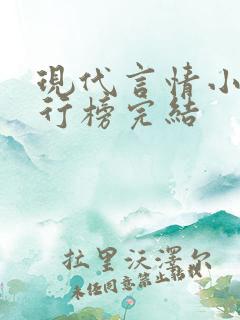 現代言情小
行榜完結
拉里沃澤尔
未经同意禁止转载